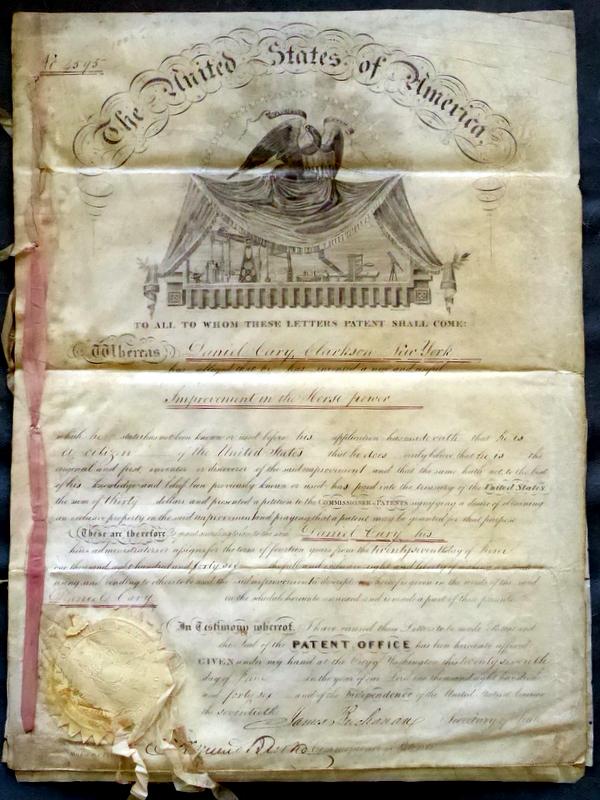 No 4595
The United States of America,
TO ALL TO WHOM THESE LETTERS PATENT SHALL COME:
Whereas Daniel Cary, Clarkson New York
has alleged that he has invented a new and useful
Improvement in the Horse power
which he states has not been known or used before his application has made oath that he is
a citizen of the United States that he does verily believe that he is the
original and first inventor or discoverer of the said improvement and that the same hath not to the best
of his knowledge and belief been previously known or used has paid into the treasury of the United States
the sum of thirty dollars and presented a petition to the COMMISSIONER of PATENTS signifying a desire of obtaining
an exclusive property in the said improvement and praying that a patent may be granted for that purpose
These are therefore to grant according to law to the said Daniel Cary his
heirs administrators or assigns for the term of fourteen years from the twenty seventh day of June
one thousand eight hundred and forty six the full and exclusive right and liberty of
using and vending to others to be used the said improvement a description whereof is given in the words of the said
Daniel Cary in the schedule hereunto annexed and is made a part of these presents
In Testimony whereof I have caused these Letters to be made Patent and
the Seal of the PATENT OFFICE has been hereunto affixed
GIVEN under my hand at the City of Washington this twenty seventh
day of June in the year of our Lord one thousand eight hundred
and forty six and of the Independence of the United States of America
the seventieth
James Buchanan Secretary of State
Edmund Burke Commissioner of Patents